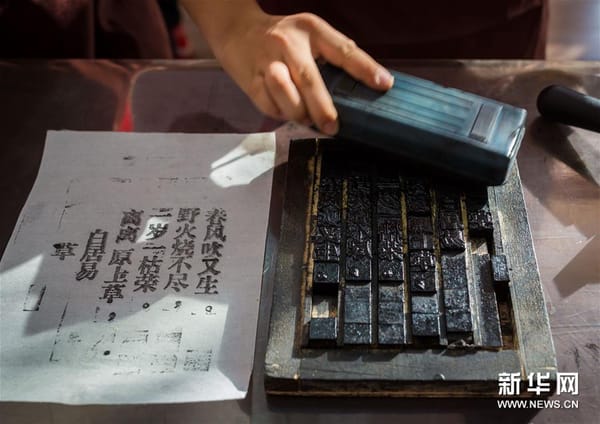 草
白居易
离离原上草，
一岁一枯荣。
野火烧不尽，
春风吹又生。
新华网
WWW.NEWS.CN